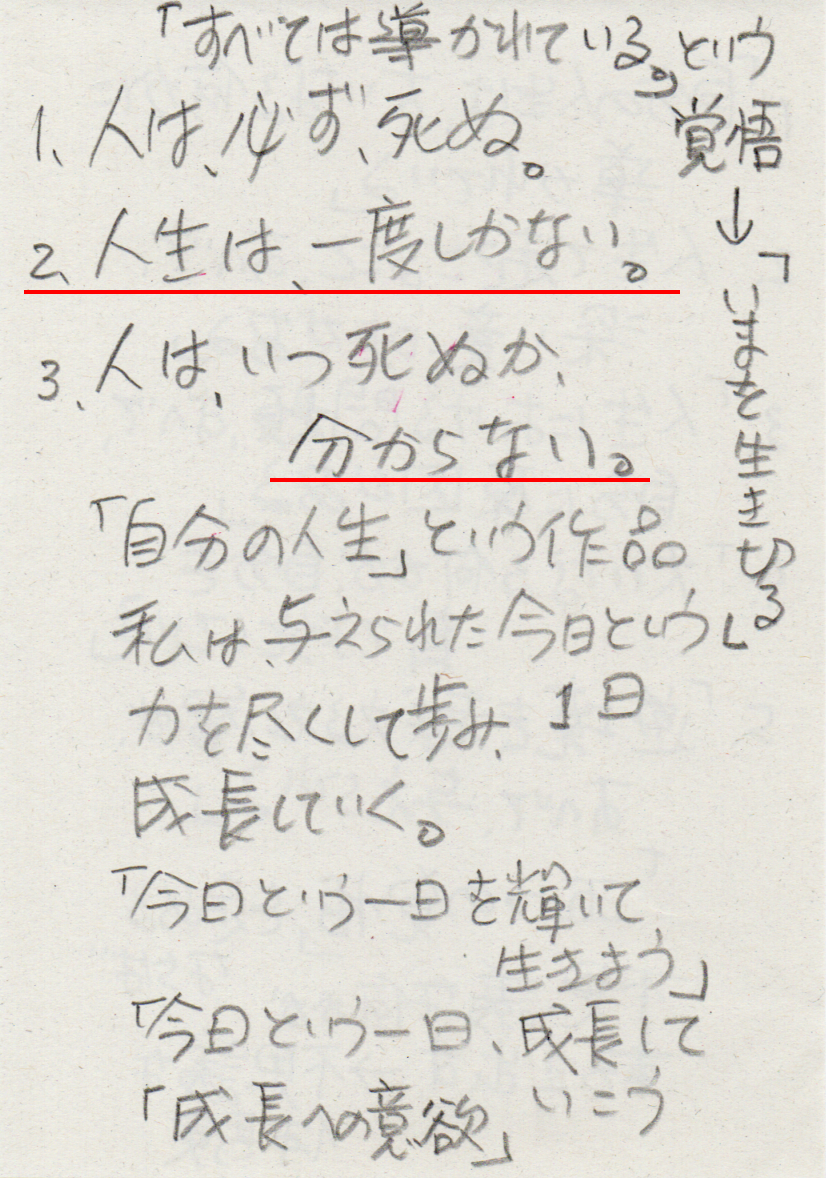 「すべては導かれている」という
覚悟
↓
「いまを生き切る」
1、人は、必ず、死ぬ。
2、人生は、一度しかない。
3、人は、いつ死ぬか、
分からない。
「自分の人生」という作品
私は、与えられた今日という
1日
力を尽くして歩み、
成長していく。
「今日という一日を輝いて
生きよう」
「今日という一日、成長して
いこう
「成長への意欲」